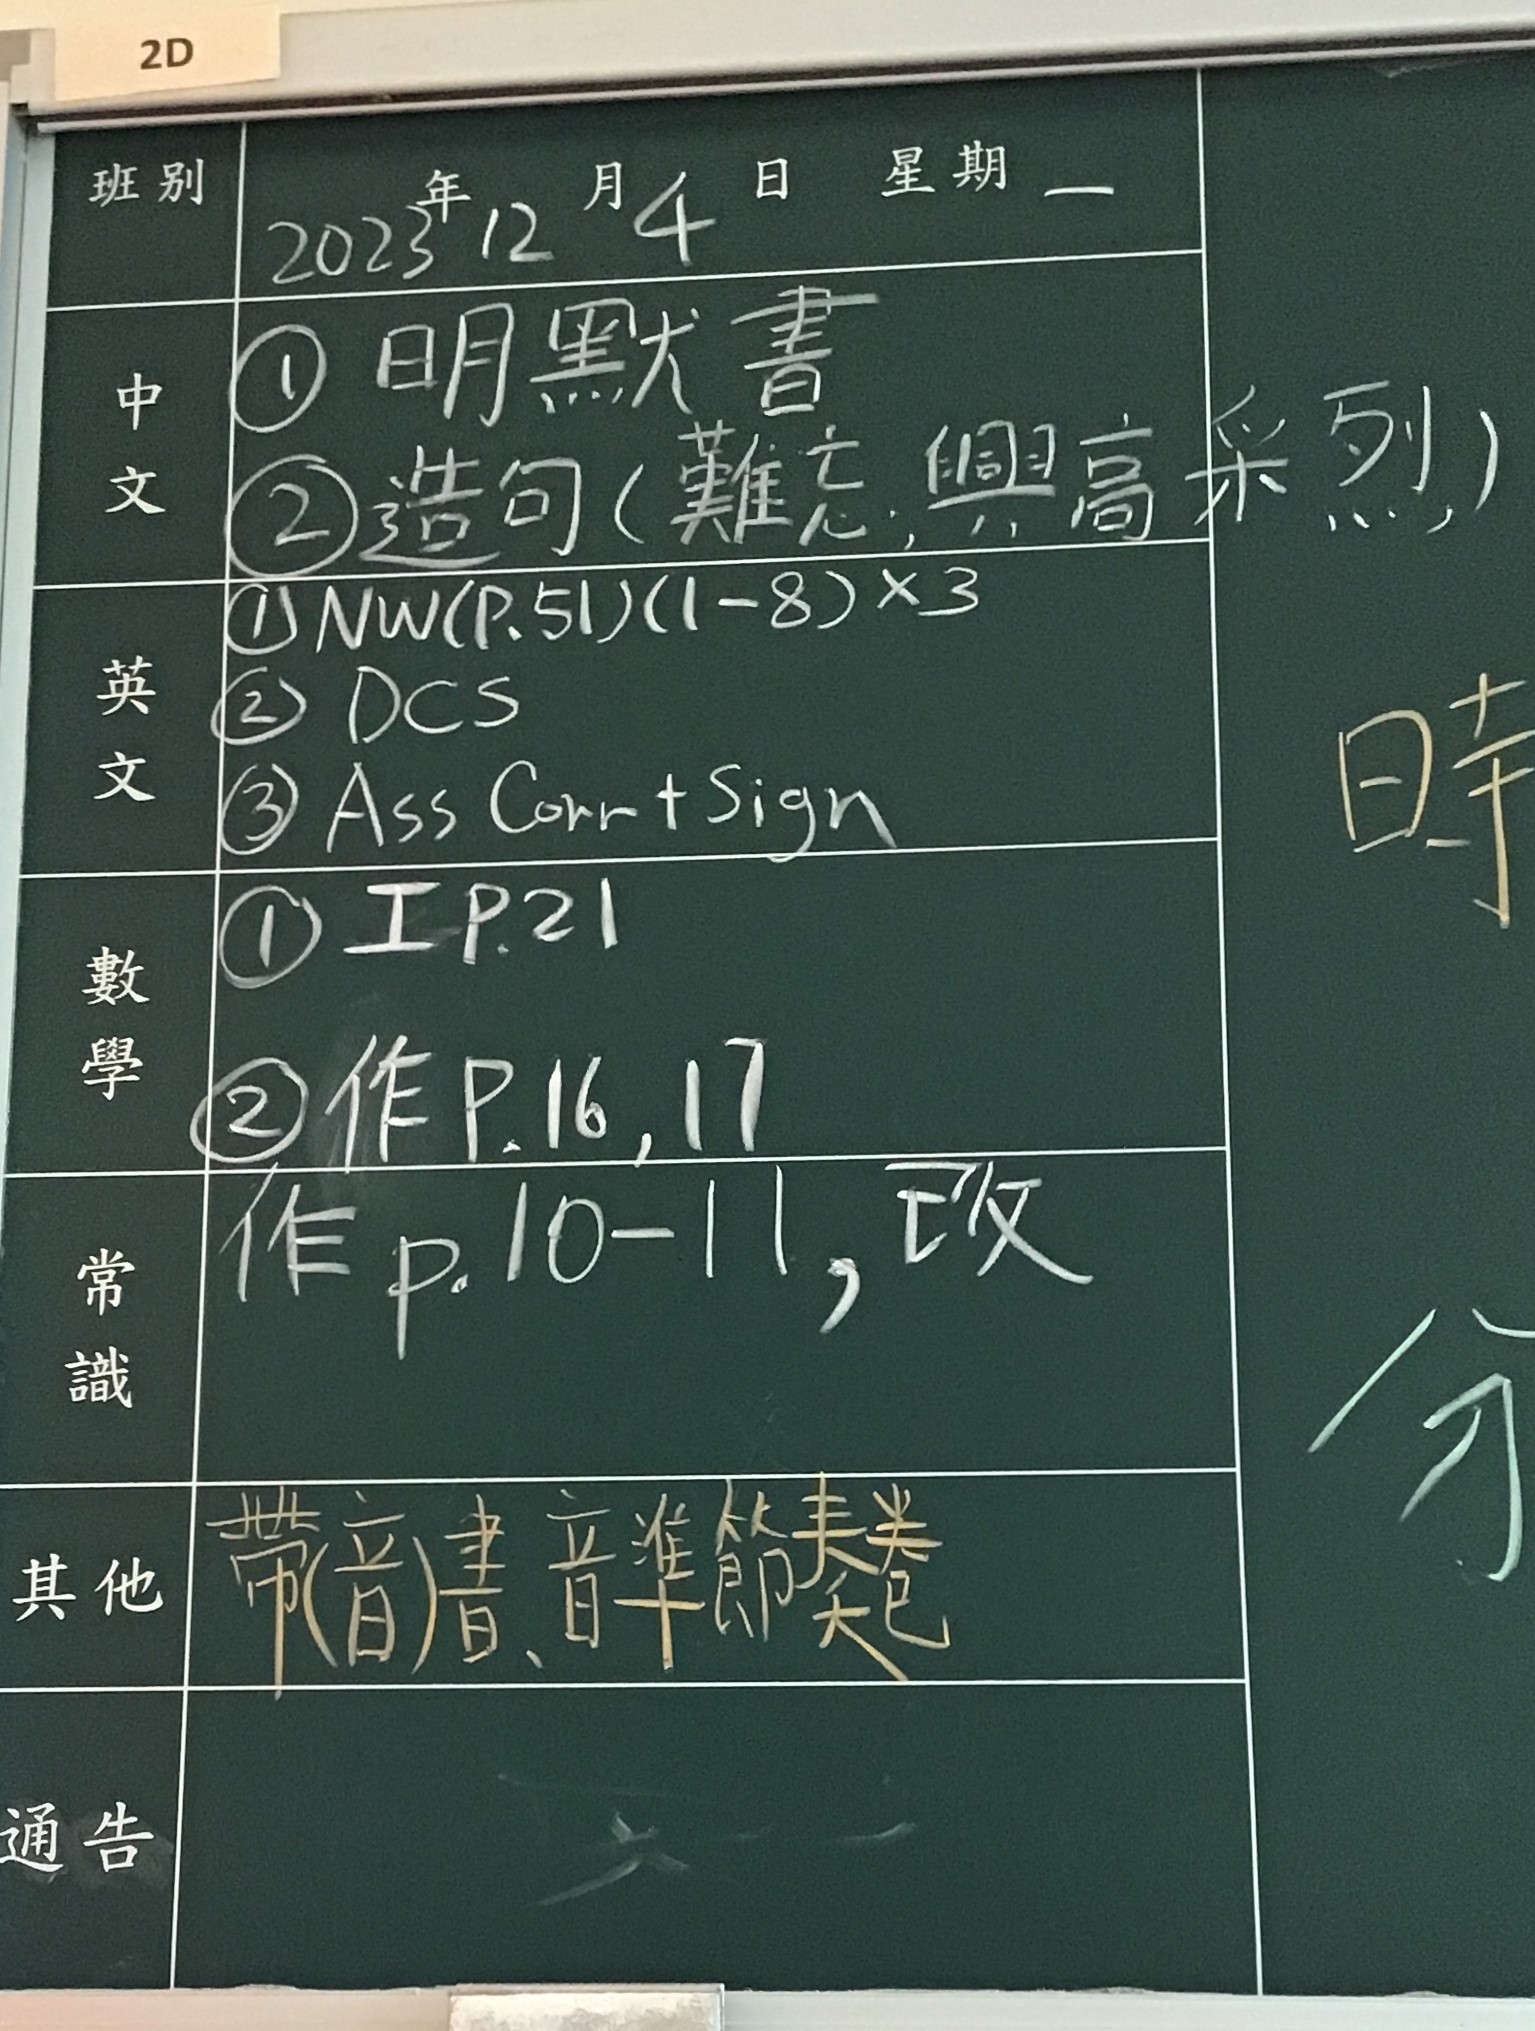 2D
班別 2023年12月4日 星期一
中文
① 明默書
② 造句(難忘;興高采烈)
英文
① NW(P.51)(1-8)×3
② DCS
③ Ass Corr+Sign
數學
① 工P.21
② 作P.16,17
常識
作p.10-11,改
其他
帶(音)書、音準節奏卷
通告
時
分